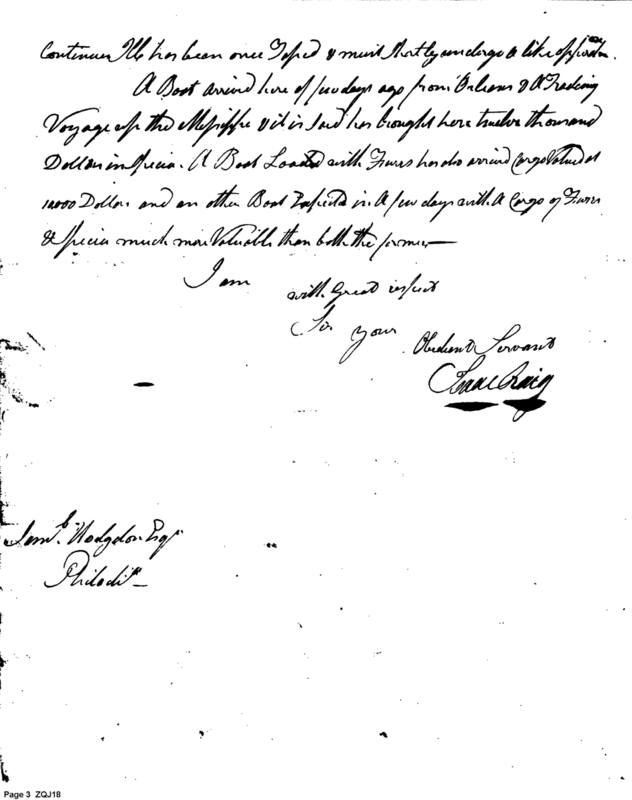 Continues Ill has been once Taped & must shortly undergo a like operation.
A Boat arrived here a few days ago from Orleans & A Trading
Voyage up the Mississippe & it is said has brought here twelve thousand
Dollars in Specia. A Boat Loaded with Furrs has also arrived Cargo Valued at
10000 Dollars and an other Boat Expected in A few days with A Cargo of Furrs
& Specia much more Valuable than both the former—
I am
with Great respect
Sir your
Obedient Servant
Isaac Craig
Saml. Hodgdon Esqr
Philada.
Page 3 ZQJ18